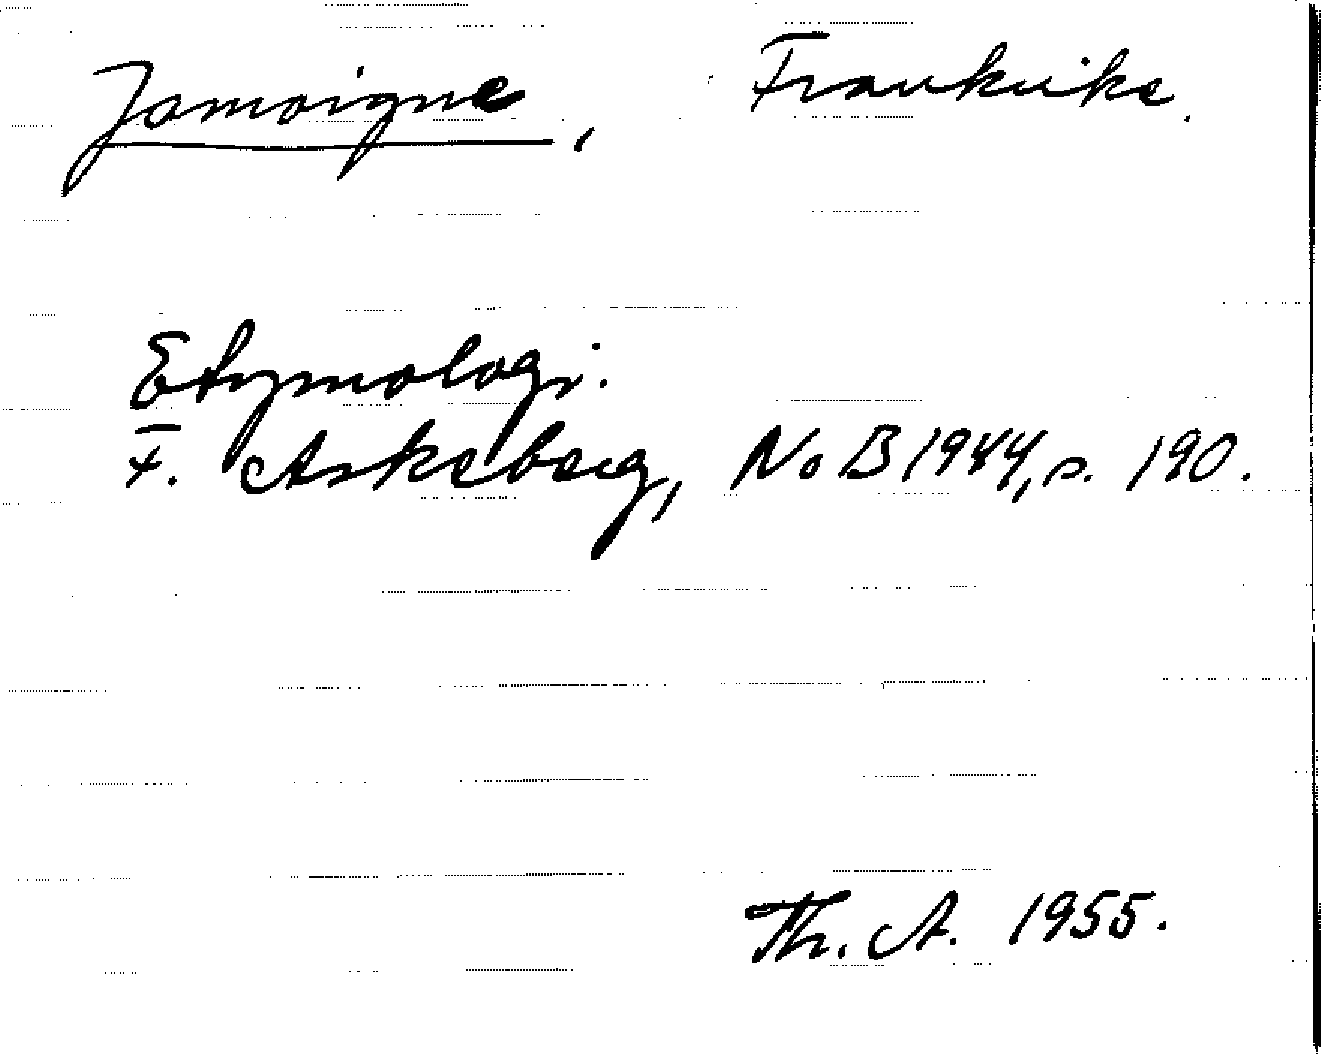 Jamoigne, Frankrike.
Etymologi.
F. Askeberg, NoB 1944, s. 190.
Th. A. 1955.